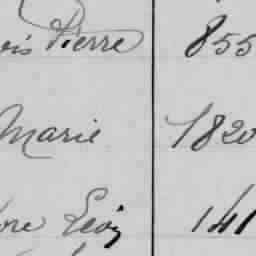 ois Pierre 855
Marie 1820
ore Léon 141